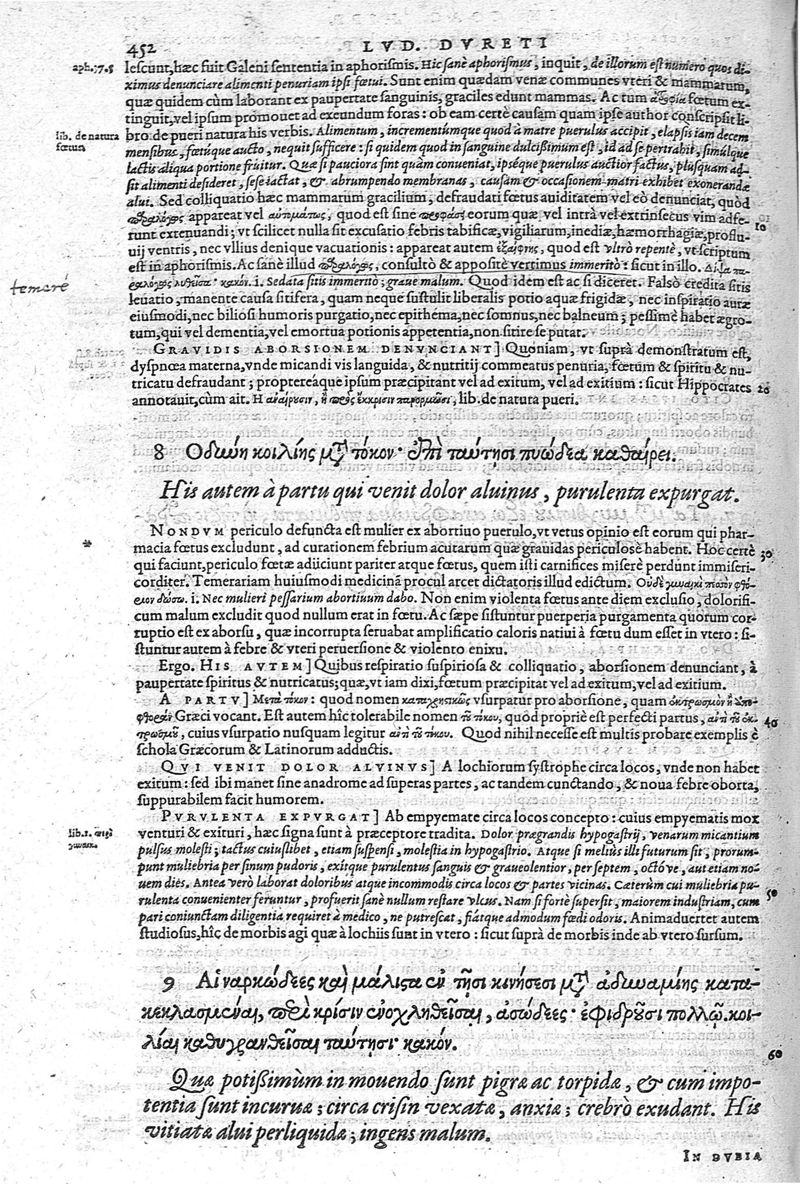 452
LVD. DVRETI
aph. 37.5
lescunt, hæc fuit Galeni sententia in aphorismis. Hic sanè aphorismus, inquit, de illorum est numero quos di-
ximus denunciare alimenti penuriam ipsi fœtui. Sunt enim quædam venæ communes vteri & mammarum,
quæ quidem cùm laborant ex paupertate sanguinis, graciles edunt mammas. Ac tum fœtum ex-
tinguit, vel ipsum promouet ad exeundum foras: ob eam certè causam quam ipse author conscripsit li-
lib. de natura
fœtum
bro de pueri natura his verbis. Alimentum, incrementúmque quod à matre puerulus accipit, elapsis iam decem
mensibus, fœtúque aucto, nequit sufficere: si quidem quod in sanguine dulcißimum est, id ad se pertrahit, simúlque
lactis aliqua portione fruitur. Quæ si pauciora sint quàm conueniat, ipséque puerulus auctior factus, plusquam ad-
sit alimenti desideret, sese iactat, & abrumpendo membranas, causam & occasionem matri exhibet exonerandæ
alui. Sed colliquatio hæc mammarum gracilium, defraudati fœtus auiditatem vel eò denunciat, quòd
appareat vel αὐτομάτως, quod est sine προφάσι eorum quæ vel intrà vel extrinsecus vim adfe-
10
runt extenuandi; vt scilicet nulla sit excusatio febris tabificæ, vigiliarum, inediæ, hæmorrhagiæ, proflu-
uij ventris, nec vllius denique vacuationis: appareat autem ἐξαίφνης, quod est vltrò repentè, vt scriptum
est in aphorismis. Ac sanè illud παραλόγως, consultò & appositè vertimus immeritò: sicut in illo. Δίψα πα-
temerè
ραλόγως λυθεῖσα κακόν. i. Sedata sitis immeritò; graue malum. Quod idem est ac si diceret. Falsò credita sitis
leuatio, manente causa sitifera, quam neque sustulit liberalis potio aquæ frigidæ, nec inspiratio auræ
eiusmodi, nec biliosi humoris purgatio, nec epithema, nec somnus, nec balneum; pessimè habet ægro-
tum, qui vel dementia, vel emortua potionis appetentia, non sitire se putat.
GRAVIDIS ABORSIONEM DENVNCIANT] Quoniam, vt suprà demonstratum est,
dyspnœa materna, vnde micandi vis languida, & nutritij commeatus penuria, fœtum & spiritu & nu-
tricatu defraudant; proptereáque ipsum præcipitant vel ad exitum, vel ad exitium: sicut Hippocrates
20
annotauit, cùm ait. lib. de natura pueri.
8 Οδύνη κοιλίης μετὰ τόκον· ἐπὶ ταύτησι πυώδεα καθαίρει.
His autem à partu qui venit dolor aluinus, purulenta expurgat.
NONDVM periculo defuncta est mulier ex abortiuo puerulo, vt vetus opinio est eorum qui phar-
*
macia fœtus excludunt, ad curationem febrium acutarum quæ grauidas periculosè habent. Hoc certè
30
qui faciunt, periculo fœtæ adiiciunt pariter atque fœtus, quem isti carnifices miserè perdunt immiseri-
corditer. Temerariam huiusmodi medicinã procul arcet dictatoris illud edictum. Οὐδὲ γυναικὶ πεσσὸν φθό-
ριον δώσω. i. Nec mulieri pessarium abortiuum dabo. Non enim violenta fœtus ante diem exclusio, dolorifi-
cum malum excludit quod nullum erat in fœtu. Ac sæpe sistuntur puerperia purgamenta quorum cor-
ruptio est ex aborsu, quæ incorrupta seruabat amplificatio caloris natiui à fœtu dum esset in vtero: si-
stuntur autem à febre & vteri peruersione & violento enixu.
Ergo. HIS AVTEM] Quibus respiratio suspiriosa & colliquatio, aborsionem denunciant, à
paupertate spiritus & nutricatus; quæ, vt iam dixi, fœtum præcipitat vel ad exitum, vel ad exitium.
A PARTV] Μετὰ τόκον: quod nomen καταχρηστικῶς vsurpatur pro aborsione, quam ἐκτρωσμὸν ἢ ὑπο-
40
φθορὰν Græci vocant. Est autem hîc tolerabile nomen τοῦ τόκου, quod propriè est perfecti partus, ἀντὶ τοῦ ἐκ-
τρωσμοῦ, cuius vsurpatio nusquam legitur ἀντὶ τοῦ τόκου. Quod nihil necesse est multis probare exemplis è
schola Græcorum & Latinorum adductis.
QVI VENIT DOLOR ALVINVS] A lochiorum systrophe circa locos, vnde non habet
exitum: sed ibi manet sine anadrome ad superas partes, ac tandem cunctando, & noua febre oborta,
suppurabilem facit humorem.
PVRVLENTA EXPVRGAT] Ab empyemate circa locos concepto: cuius empyematis mox
lib. 1. περὶ
γυναικ.
venturi & exituri, hæc signa sunt à præceptore tradita. Dolor prægrandis hypogastrij, venarum micantium
pulsus molesti; tactus cuiuslibet, etiam suspensi, molestia in hypogastrio. Atque si meliùs illi futurum sit, prorum-
punt muliebria per sinum pudoris, exitque purulentus sanguis & graueolentior, per septem, octóve, aut etiam no-
uem dies. Antea verò laborat doloribus atque incommodis circa locos & partes vicinas. Cæterùm cui muliebria pu-
50
rulenta conuenienter feruntur, profuerit sanè nullum restare vlcus. Nam si fortè supersit, maiorem industriam, cum
pari coniunctam diligentia requiret à medico, ne putrescat, fiátque admodum fœdi odoris. Animaduertet autem
studiosus, hîc de morbis agi quæ à lochiis sunt in vtero: sicut suprà de morbis inde ab vtero sursum.
9 Αἱ ναρκώδεες καὶ μάλιστα ἐν τῇσι κινήσεσι μετὰ ἀδυναμίης κατα-
κεκλασμέναι, περὶ κρίσιν ἐνοχληθεῖσαι, ἀσώδεες· ἐφιδροῦσι πολλῷ. κοι-
λίαι καθυγρανθεῖσαι ταύτησι· κακόν.
60
Quæ potißimùm in mouendo sunt pigræ ac torpidæ, & cum impo-
tentia sunt incuruæ; circa crisin vexatæ, anxiæ; crebrò exudant. His
vitiatæ alui perliquidæ; ingens malum.
IN DVBIA